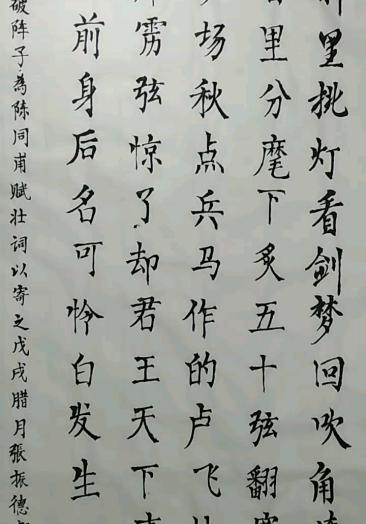 里挑灯看剑梦回吹角
里分麾下炙五十弦翻
场秋点兵马作的卢飞
雳弦惊了却君王天下
前身后名可怜白发生
破阵子·為陈同甫赋壮词以寄之戊戌腊月張振德